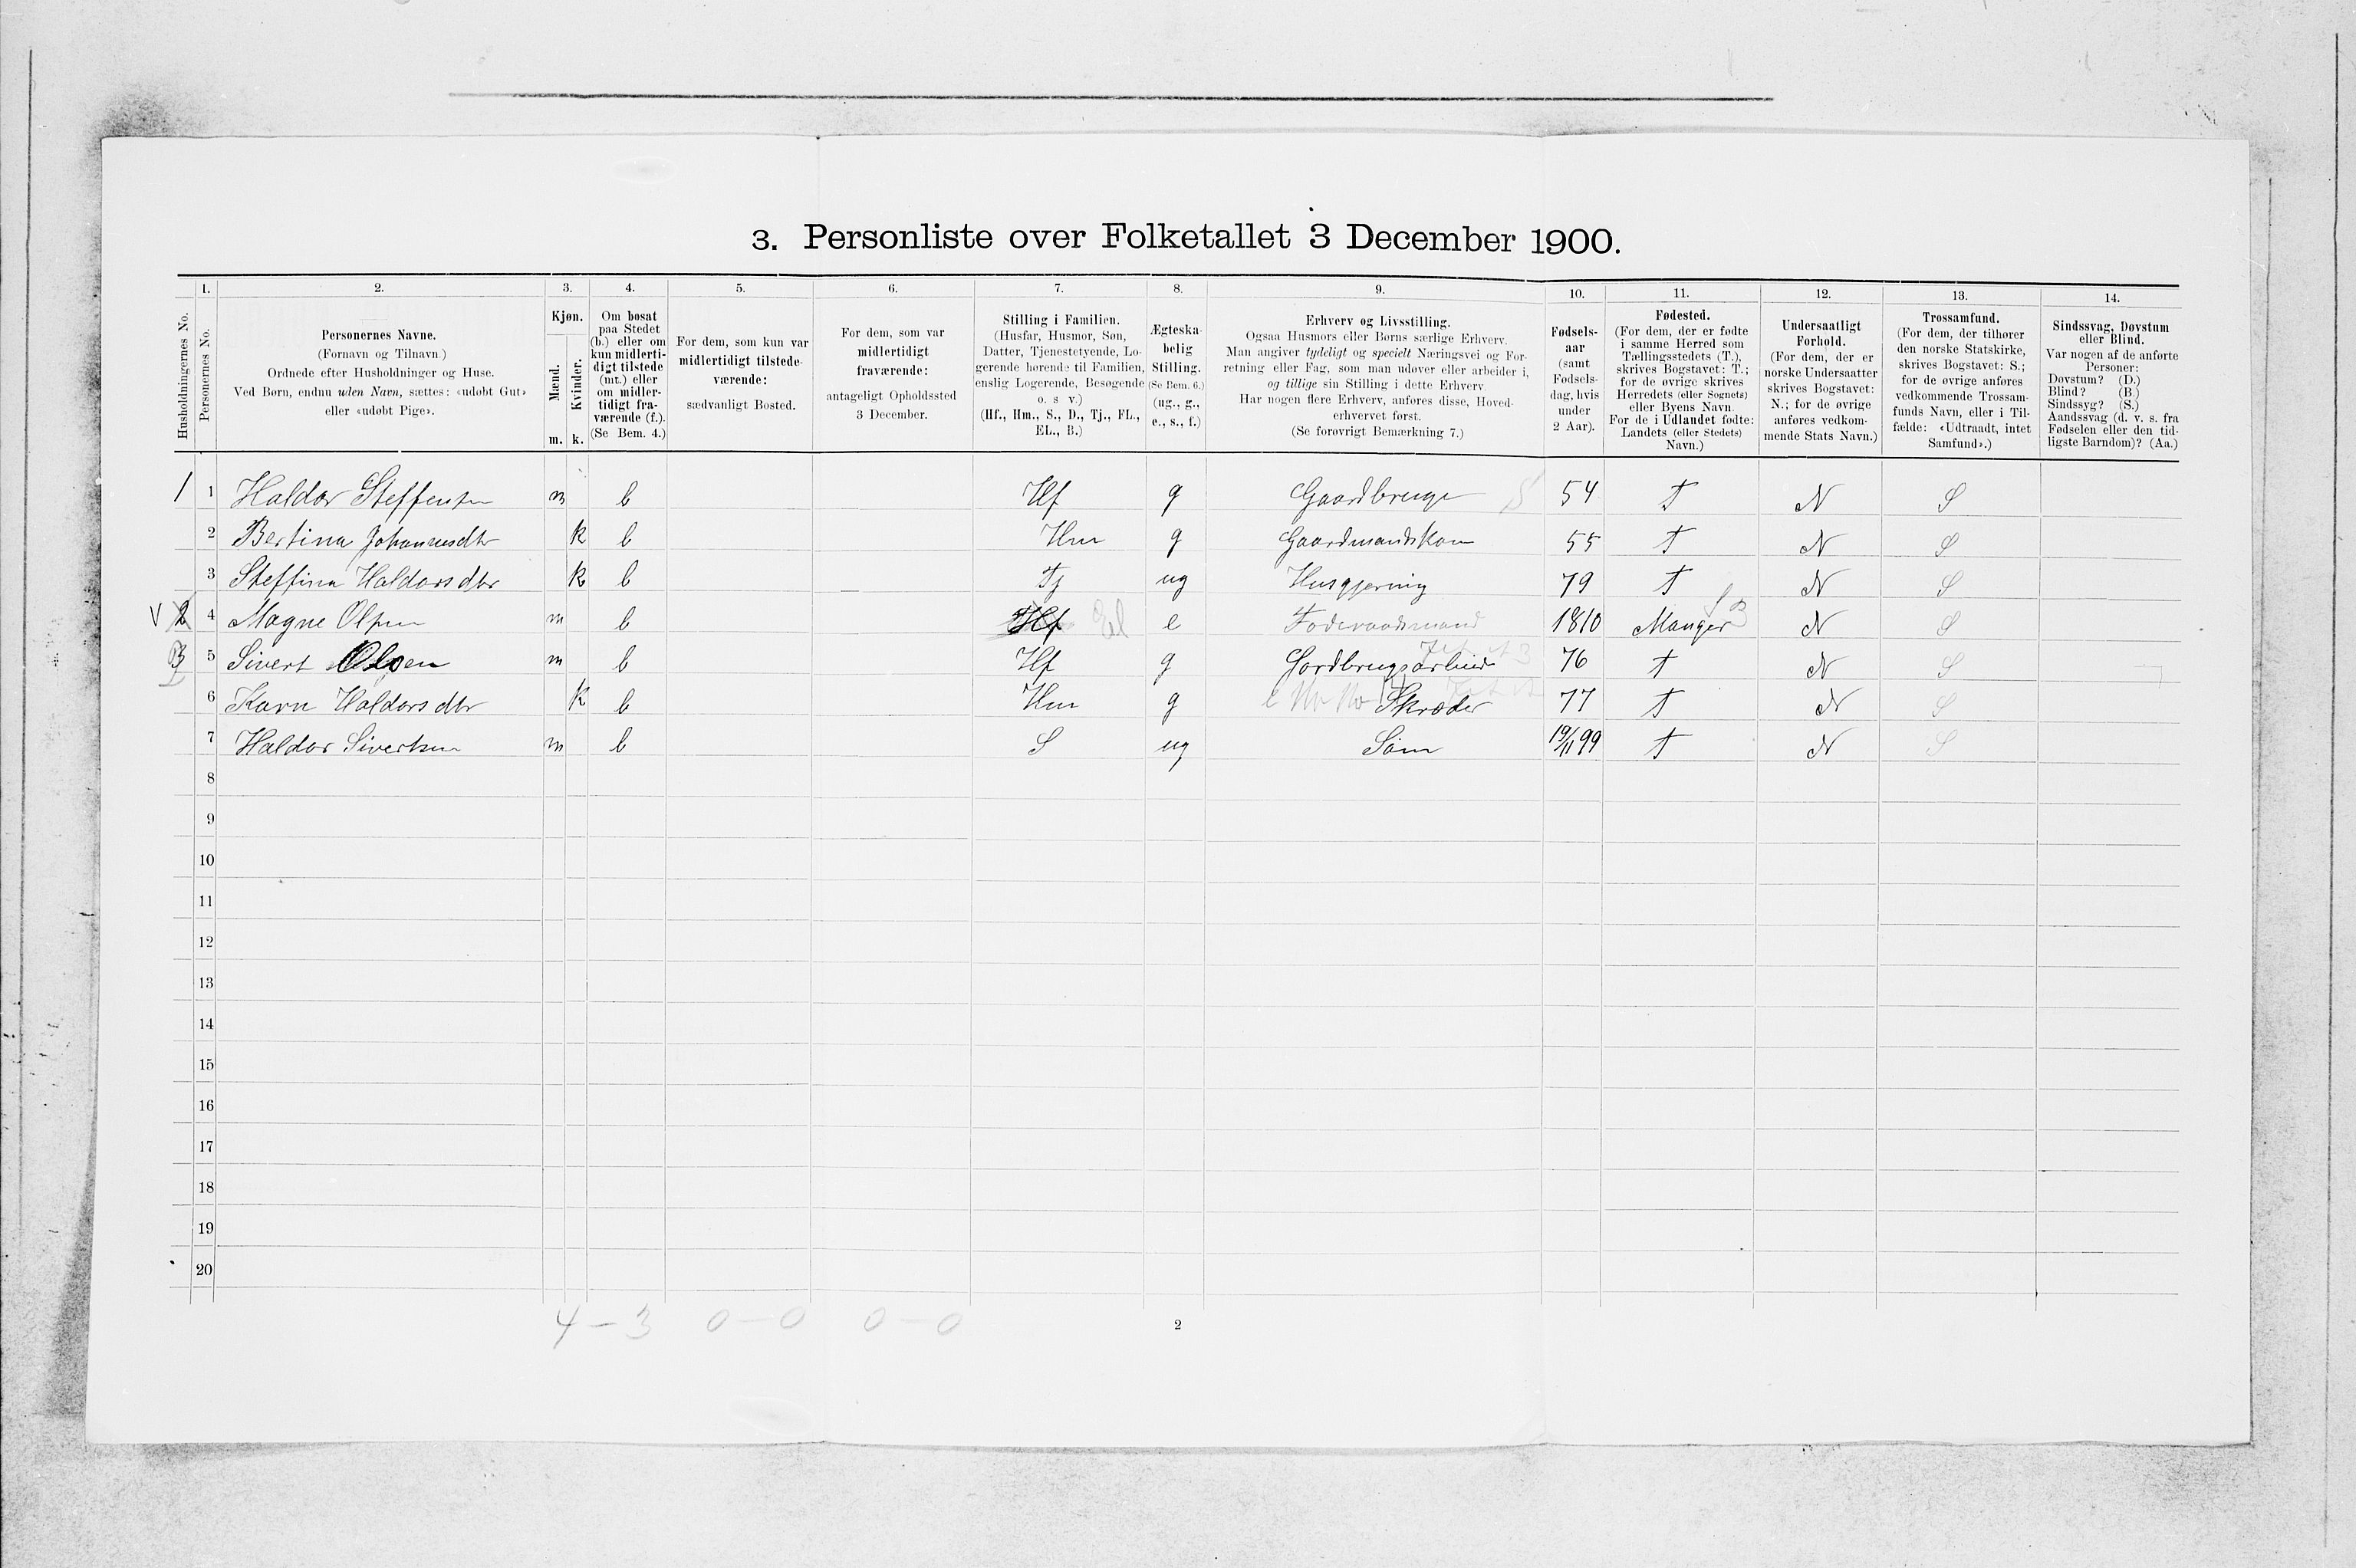 3. Personliste over Folketallet 3 December 1900.
1. 2. 3. 4. 5. 6. 7. 8. 9. 10. 11. 12. 13. 14.
Husholdningernes No.
Personernes No.
Personernes Navne.
(Fornavn og Tilnavn)
Ordnede efter Husholdninger og Huse.
Ved Børn, endnu uden Navn, sættes: «udøbt Gut»
eller «udøbt Pige».
Kjøn.
Mænd.
Kvinder.
m. k.
Om bosat
paa Stedet
(b.) eller om
kun midlerti-
digt tilstede
(mt.) eller
om midler-
tidigt fra-
værende (f.).
(Se Bem. 4.)
For dem, som kun var
midlertidigt tilstede-
værende:
sædvanligt Bosted.
For dem, som var
midlertidigt
fraværende:
antageligt Opholdssted
3 December.
Stilling i Familien.
(Husfar, Husmor, Søn,
Datter, Tjenestetyende, Lo-
gerende hørende til Familien,
enslig Logerende, Besøgende
o. s v.)
(Hf., Hm., S., D., Tj., FL.,
EL., B.)
Ægteska-
belig
Stilling.
(Se Bem. 6.)
(ug., g.,
e., s., f.)
Erhverv og Livsstilling.
Ogsaa Husmors eller Børns særlige Erhverv.
Man angiver tydeligt og specielt Næringsvei og For-
retning eller Fag, som man udøver eller arbeider i,
og tillige sin Stilling i dette Erhverv.
Har nogen flere Erhverv, anføres disse, Hoved-
erhvervet først.
(Se forøvrigt Bemærkning 7.)
Fødsels-
aar
(samt
Fødsels-
dag, hvis
under
2 Aar).
Fødested.
(For dem, der er fødte
i samme Herred som
Tællingsstedets (T.),
skrives Bogstavet: T.;
for de øvrige skrives
Herredets (eller Sognets)
eller Byens Navn.
For de i Udlandet fødte:
Landets (eller Stedets)
Navn.)
Undersaatligt
Forhold.
(For dem, der er
norske Undersaatter
skrives Bogstavet:
N.; for de øvrige
anføres vedkom-
mende Stats Navn.)
Trossamfund.
(For dem, der tilhører
den norske Statskirke,
skrives Bogstavet: S.;
for de øvrige anføres
vedkommende Trossam-
funds Navn, eller i Til-
fælde: «Udtraadt, intet
Samfund».)
Sindssvag, Døvstum
eller Blind.
Var nogen af de anførte
Personer:
Døvstum? (D.)
Blind? (B.)
Sindssyg? (S.)
Aandssvag (d. v. s. fra
Fødselen eller den tid-
ligste Barndom)? (Aa.)
1 1 Haldor Steffensen m b Hf g Gaardbruger 54 T N S
2 Bertina Johannesdtr k b Hm g Gaardmandskone 55 T N S
3 Steffina Haldorsdtr k b Tj ug Husgjerning 79 T N S
2 4 Magne Olsen m b Hf El e Foderaadsmand 1810 Manger N S
3 5 Sivert Olsen m b Hf g Jordbrugsarbeid 76 T N S
6 Karn Haldorsdtr k b Hm g Skræder 77 T N S
7 Haldor Sivertsen m b S ug Søn 19/11 99 T N S
8
9
10
11
12
13
14
15
16
17
18
19
20
4 - 3 0 - 0 0 - 0
2